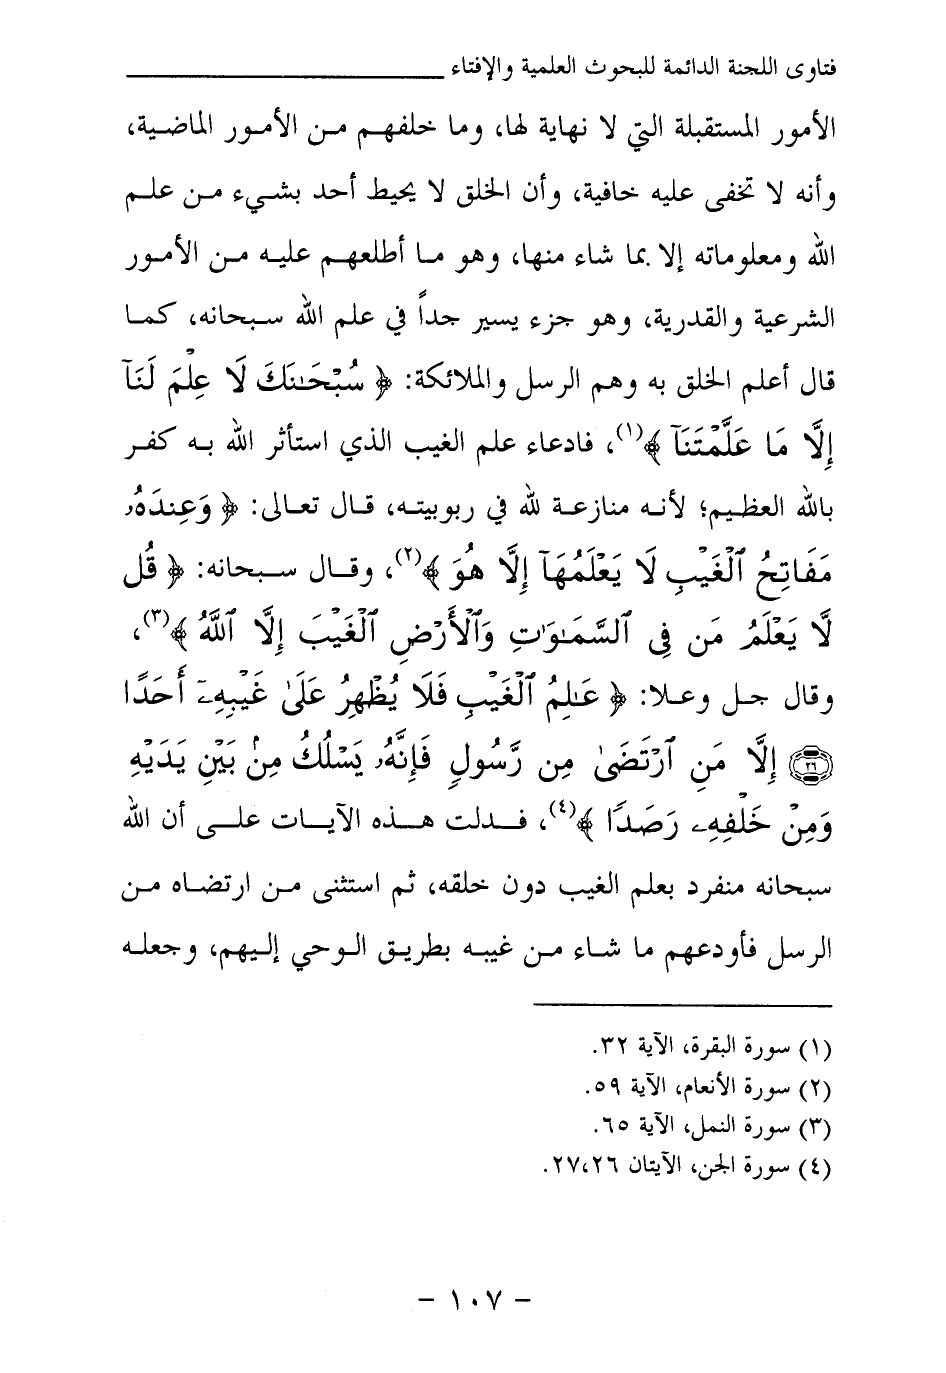 فتاوى اللجنة الدائمة للبحوث العلمية والإفتاء
الأمور المستقبلة التي لا نهاية لها، وما خلفهم من الأمور الماضية،
وأنه لا تخفى عليه خافية، وأن الخلق لا يحيط أحد بشيء من علم
الله ومعلوماته إلا بما شاء منها، وهو ما أطلعهم عليه من الأمور
الشرعية والقدرية، وهو جزء يسير جداً في علم الله سبحانه، كما
قال أعلم الخلق به وهم الرسل والملائكة: ﴿ سُبْحَٰنَكَ لَا عِلْمَ لَنَآ
إِلَّا مَا عَلَّمْتَنَآ ﴾(١)، فادعاء علم الغيب الذي استأثر الله به كفر
بالله العظيم؛ لأنه منازعة لله في ربوبيته، قال تعالى: ﴿ وَعِندَهُۥ
مَفَاتِحُ ٱلْغَيْبِ لَا يَعْلَمُهَآ إِلَّا هُوَ ﴾(٢)، وقال سبحانه: ﴿ قُل
لَّا يَعْلَمُ مَن فِى ٱلسَّمَٰوَٰتِ وَٱلْأَرْضِ ٱلْغَيْبَ إِلَّا ٱللَّهُ ﴾(٣)،
وقال جل وعلا: ﴿ عَٰلِمُ ٱلْغَيْبِ فَلَا يُظْهِرُ عَلَىٰ غَيْبِهِۦٓ أَحَدًا
﴿٢٦﴾ إِلَّا مَنِ ٱرْتَضَىٰ مِن رَّسُولٍ فَإِنَّهُۥ يَسْلُكُ مِنۢ بَيْنِ يَدَيْهِ
وَمِنْ خَلْفِهِۦ رَصَدًا ﴾(٤)، فدلت هذه الآيات على أن الله
سبحانه منفرد بعلم الغيب دون خلقه، ثم استثنى من ارتضاه من
الرسل فأودعهم ما شاء من غيبه بطريق الوحي إليهم، وجعله
(١) سورة البقرة، الآية ٣٢.
(٢) سورة الأنعام، الآية ٥٩.
(٣) سورة النمل، الآية ٦٥.
(٤) سورة الجن، الآيتان ٢٧،٢٦.
– ١٠٧ –